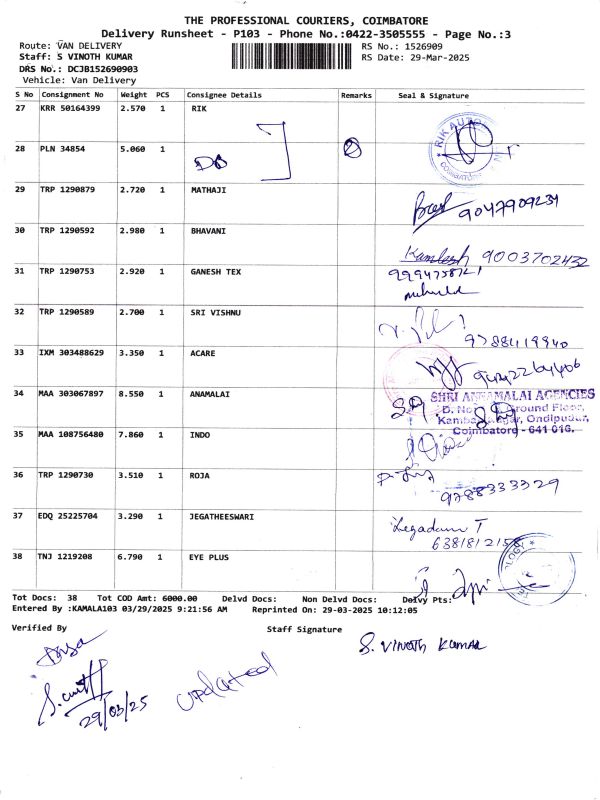 THE PROFESSIONAL COURIERS, COIMBATORE
Delivery Runsheet - P103 - Phone No.:0422-3505555 - Page No.:3
Route: VAN DELIVERY RS No.: 1526909
Staff: S VINOTH KUMAR RS Date: 29-Mar-2025
DRS No.: DCJB152690903
Vehicle: Van Delivery
S No Consignment No Weight PCS Consignee Details Remarks Seal & Signature
27 KRR 50164399 2.570 1 RIK
RIK AUTO
COIMBATORE
28 PLN 34854 5.060 1
29 TRP 1290879 2.720 1 MATHAJI
9047909231
30 TRP 1290592 2.980 1 BHAVANI
Kamlesh 9003702432
31 TRP 1290753 2.920 1 GANESH TEX
32 TRP 1290589 2.700 1 SRI VISHNU
9788419940
33 IXM 303488629 3.350 1 ACARE
34 MAA 303067897 8.550 1 ANAMALAI
SHRI ANNAMALAI AGENCIES
Ground Floor,
Ondipudur,
Coimbatore - 641 016.
35 MAA 108756480 7.860 1 INDO
36 TRP 1290730 3.510 1 ROJA
9788333329
37 EDQ 25225704 3.290 1 JEGATHEESWARI
6381812158
38 TNJ 1219208 6.790 1 EYE PLUS
Tot Docs: 38 Tot COD Amt: 6000.00 Delvd Docs: Non Delvd Docs: Delvy Pts:
Entered By :KAMALA103 03/29/2025 9:21:56 AM Reprinted On: 29-03-2025 10:12:05
Verified By Staff Signature
S. VINOTH KUMAR
29/03/25
updated